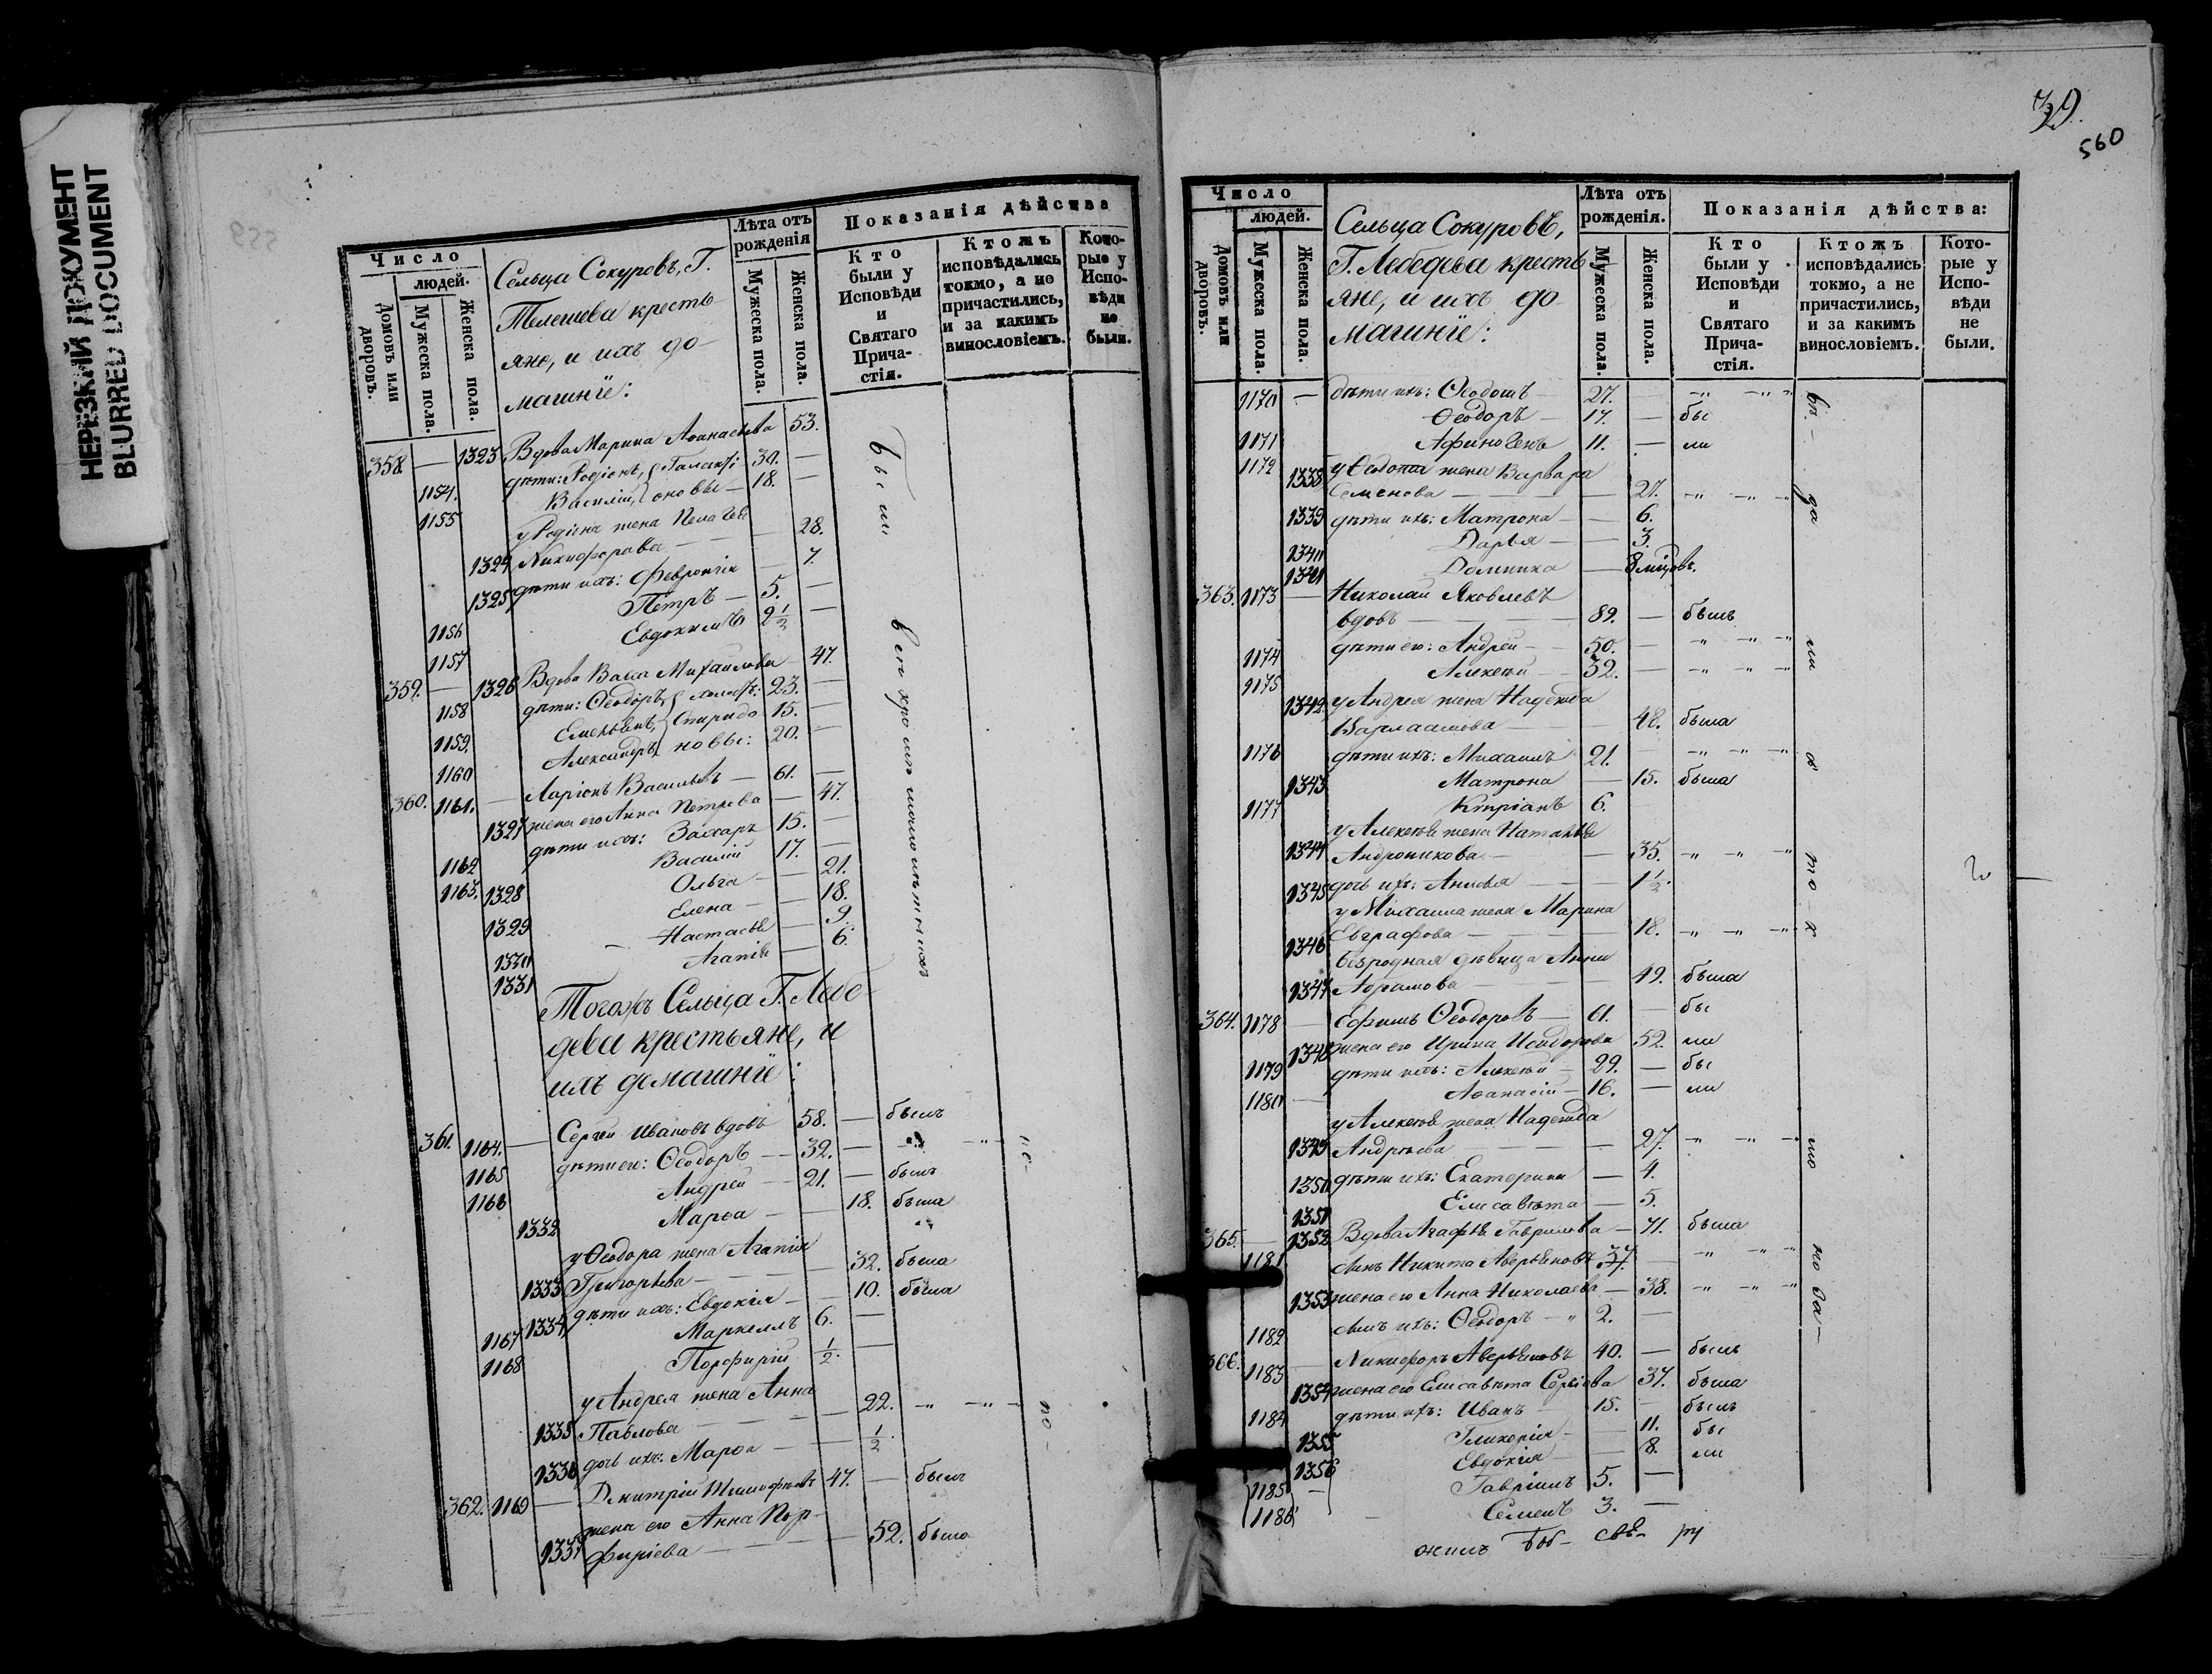 НЕРЕЗКИЙ ДОКУМЕНТ
BLURRED DOCUMENT
Число
людей.
Домовъ или дворовъ.
Мужеска пола.
Женска пола.
Сельца Сокуровъ, Г.
Телешева кресть
яне, и ихъ до-
машніе:
Лѣта отъ рожденія
Мужеска пола.
Женска пола.
Показанія дѣйства
Кто были у Исповѣди и Святаго Причастія.
Ктожъ исповѣдались токмо, а не причастились, и за какимъ винословіемъ.
Которые у Исповѣди не были.
358. — 1323 Вдова Марина Аѳанасьева 53.
1154. дѣти: Родіонъ, 30. —
1155 Василій, 18. —
у Родіона жена Пелагея
1324 Никифорова — — 28.
1325 дѣти ихъ: Февронія — 7.
1156 Петръ — 5. —
1157 Евдокимъ 2 1/2 —
359. — 1326 Вдова Васса Михайлова 47.
1158 дѣти: Ѳеодоръ, 23. —
1159. Емельянъ, Спиридо 15. —
1160 Александръ, новы: 20. —
360. 1161. — Ларіонъ Васильевъ — 61. —
1327 жена его Анна Петрова — 47.
1162 дѣти ихъ: Захаръ 15. —
1163. Василій 17. —
1328 Ольга — — 21.
1329 Елена — — 18.
1330 Настасья — 9.
1331 Агапія — 6.
были всѣ кромѣ малолѣтныхъ
Тогожъ Сельца Г. Лебе-
дева крестьяне, и
ихъ домашніе:
361. 1164. — Сергій Ивановъ вдовъ 58. — былъ
1165 дѣти его: Ѳеодоръ — 32. —
1166 Андрей — 21. — былъ
1332 Марѳа — — 18. была
у Ѳеодора жена Агапія
1333 Григорьева — — 32. была
1334 дѣти ихъ: Евдокія — — 10. была
1167 Маркеллъ 6. —
1168 Порфирій 1/2. —
у Андрея жена Анна
1335 Павлова — — 22. — " — " —
1336 дочь ихъ: Марѳа — — 1/2
362. 1169 — Димитрій Тимофѣевъ 47. — былъ
жена его Анна Пор-
1337 фиріева — — 52. была
39.
560
Число
людей.
Домовъ или дворовъ.
Мужеска пола.
Женска пола.
Сельца Сокуровъ,
Г. Лебедева кресть
яне, и ихъ до-
машніе:
Лѣта отъ рожденія.
Мужеска пола.
Женска пола.
Показанія дѣйства:
Кто были у Исповѣди и Святаго Причастія.
Ктожъ исповѣдались токмо, а не причастились, и за какимъ винословіемъ.
Которые у Исповѣди не были.
1170 — дѣти ихъ: Ѳеодотъ 27. — — " — " — "
1171 Ѳеодоръ — 17. — бы
1172 Афиногенъ 11. — ли
1338 у Ѳеодота жена Варвара
Семенова — — 27. — " — " — "
1339 дѣти ихъ: Матрона — — 6.
1340 Дарья — — 3.
1341 Домника — 8 мѣцовъ.
363. 1173 — Николай Яковлевъ
вдовъ — 89. — былъ
1174 дѣти его: Андрей — 50. — — " — " — "
1175 Алексѣй — 32. — — " — " — "
1342 у Андрея жена Надежда
Варлаамова — — 48. была
1176 дѣти ихъ: Михаилъ 21. — — " — " — "
1343 Матрона — 15. была
1177 Кипріанъ 6.
у Алексѣя жена Наталья
1344 Андроникова — — 35. — " — " — "
1345 дочь ихъ: Анисья — — 1 1/2
у Михаила жена Марина
1346 Евграфова — — 18. — " — " — "
безродная дѣвица Анна
1347 Абрамова — — 49. была
364. 1178 — Ефимъ Ѳеодоровъ — 61. — бы
1348 жена его Ирина Исидорова 52. ли
1179 дѣти ихъ: Алексѣй — 29. — бы
1180 — Аѳанасій — 16. — ли
у Алексѣя жена Надежда
1349 Андреева — — 27. — " — " —
1350 дѣти ихъ: Екатерина — 4.
1351 Елисавета — 5.
365. — 1352 Вдова Агафья Гаврилова — 71. была
1181 сынъ Никита Аверьяновъ 37. — — " — " — "
1353 жена его Анна Николаева — 38. — " — " — "
1182 сынъ ихъ: Ѳеодоръ — " 2. —
366. 1183 — Никифоръ Аверьяновъ 40. — былъ
1354 жена его Елисавета Сергіева 37. была
1184 дѣти ихъ: Иванъ — 15. — былъ
1355 Гликерія — — 11. бы
1356 Евдокія — — 8. ли
1185 — Гавріилъ 5. —
1186 — Семенъ 3. —